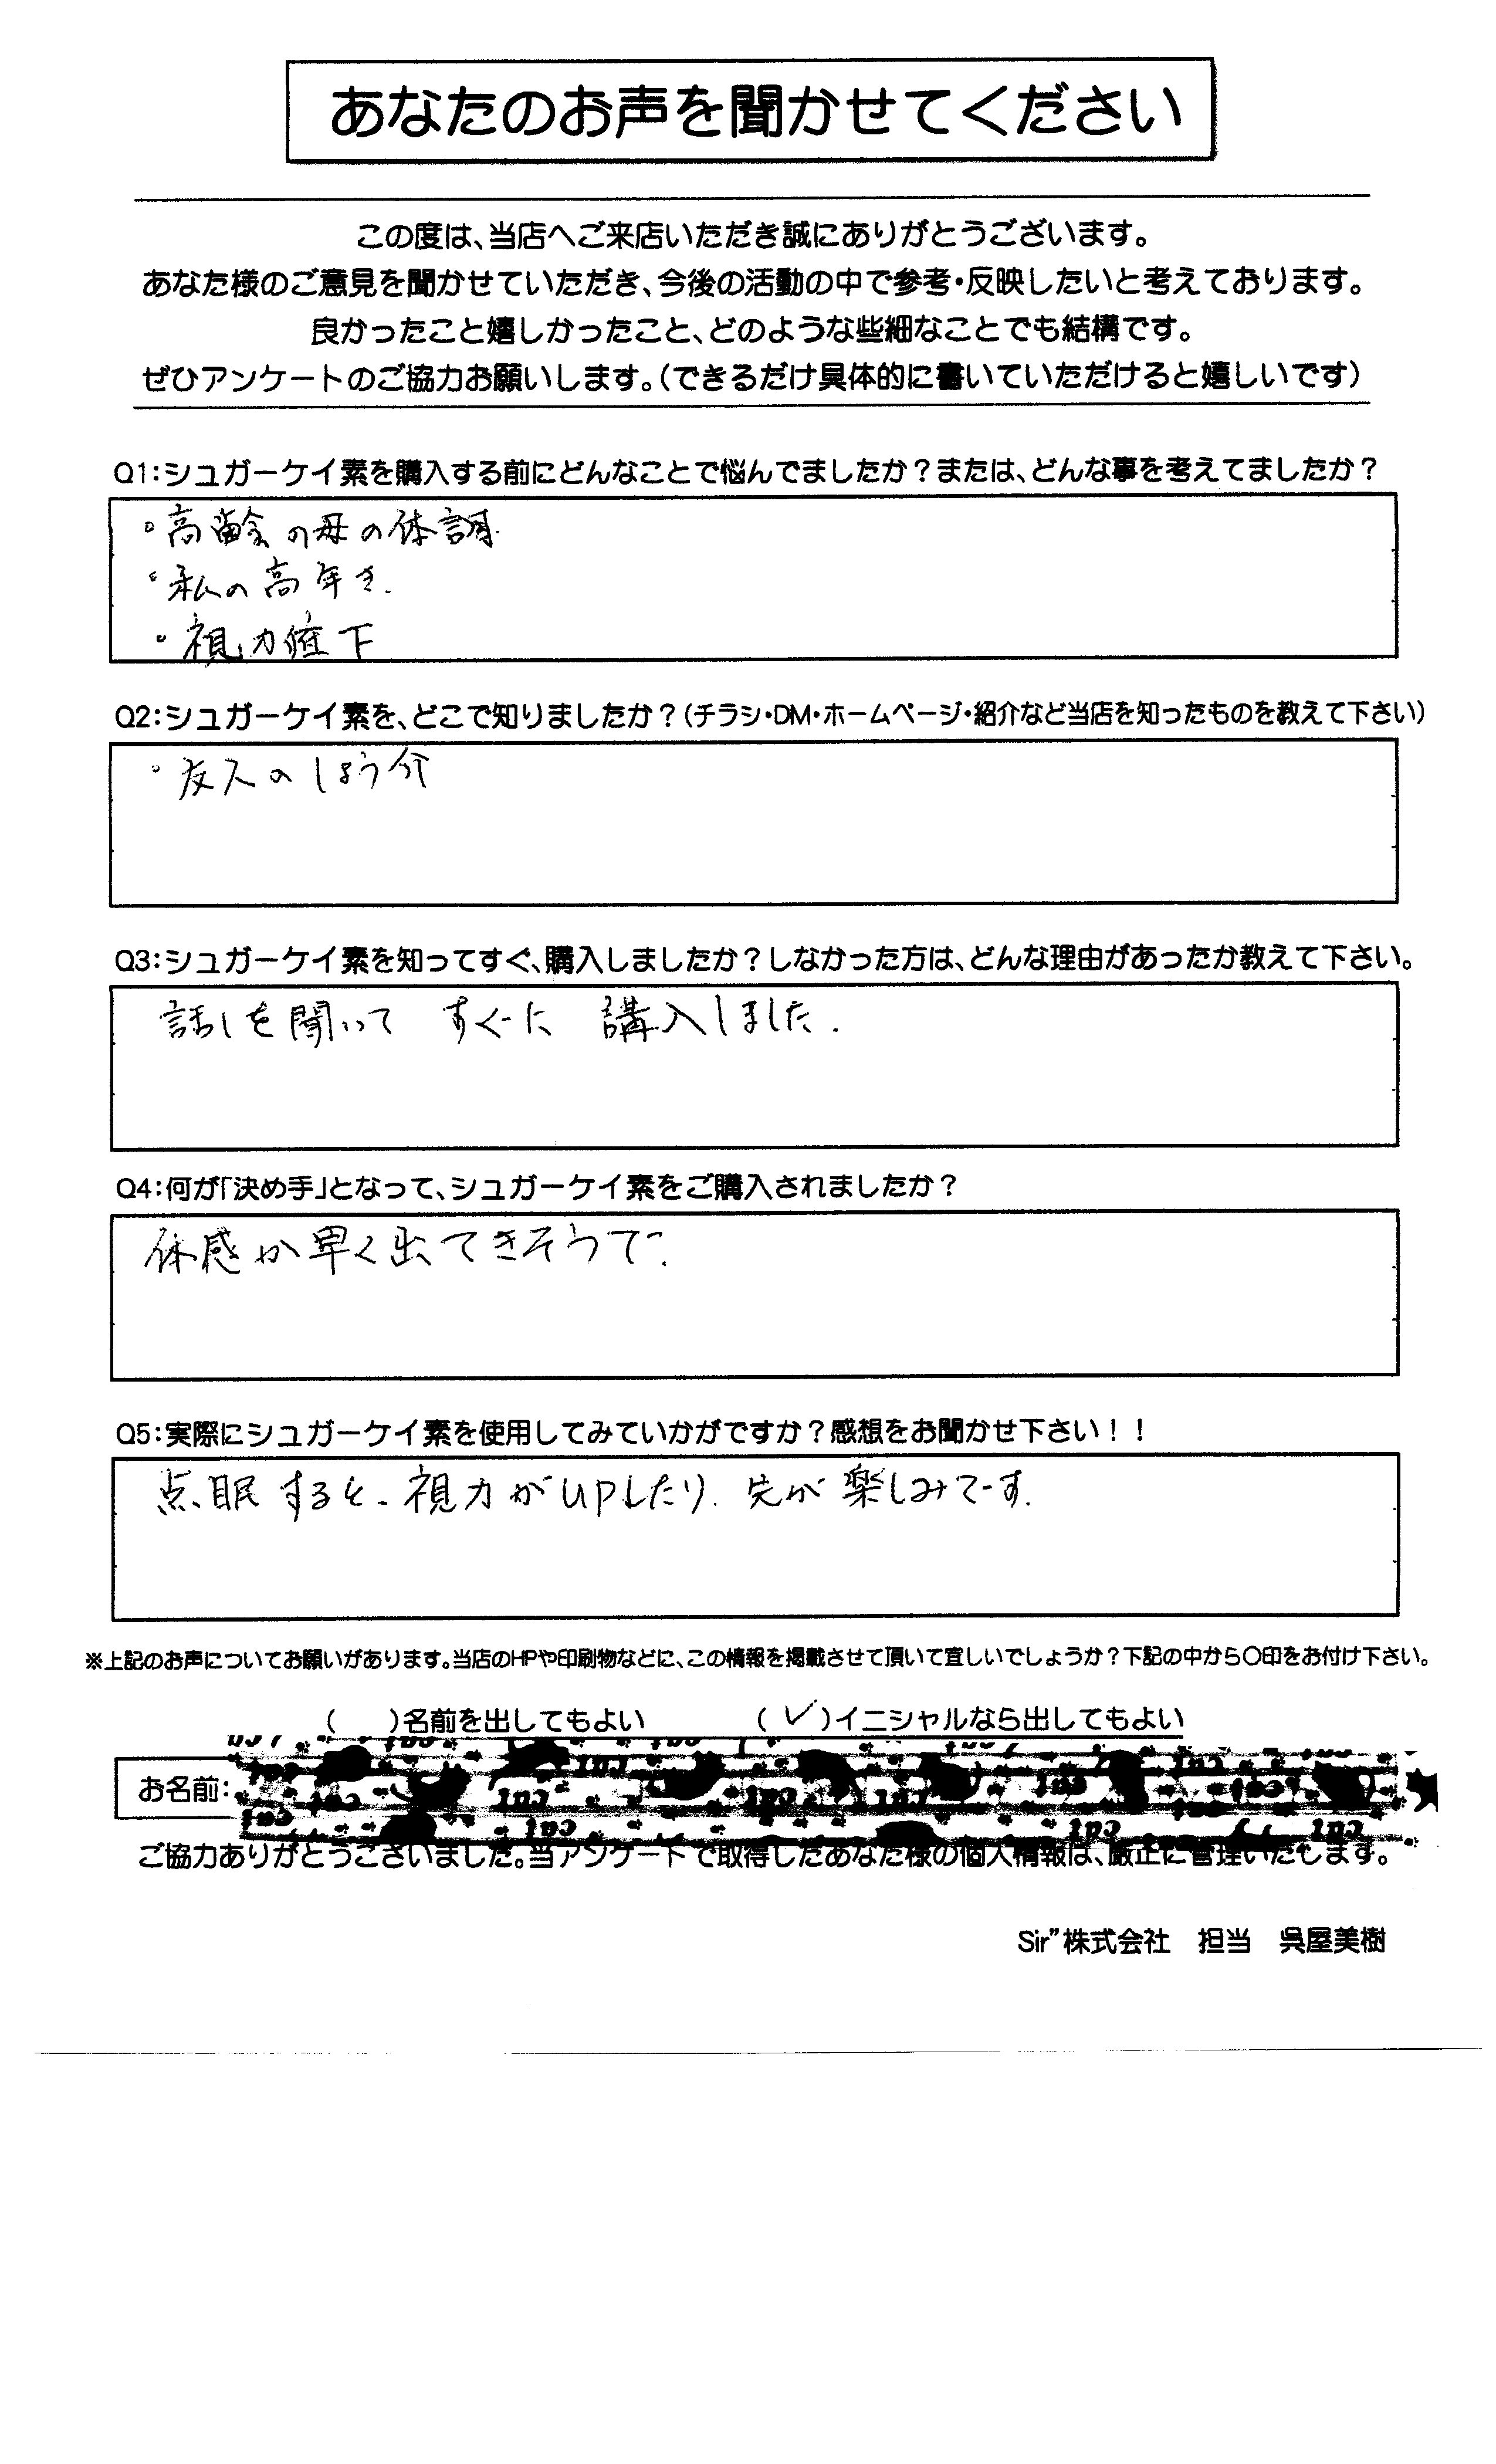 あなたのお声を聞かせてください
この度は、当店へご来店いただき誠にありがとうございます。
あなた様のご意見を聞かせていただき、今後の活動の中で参考・反映したいと考えております。
良かったこと嬉しかったこと、どのような些細なことでも結構です。
ぜひアンケートのご協力お願いします。（できるだけ具体的に書いていただけると嬉しいです）
Q1：シュガーケイ素を購入する前にどんなことで悩んでましたか？または、どんな事を考えてましたか？
・高齢の母の体調.
・私の高年き.
・視力低下
Q2：シュガーケイ素を、どこで知りましたか？（チラシ・DM・ホームページ・紹介など当店を知ったものを教えて下さい）
・友人のしょう介
Q3：シュガーケイ素を知ってすぐ、購入しましたか？しなかった方は、どんな理由があったか教えて下さい。
話しを聞いて すぐに 講入しました.
Q4：何が「決め手」となって、シュガーケイ素をご購入されましたか？
体感が早く出てきそうで.
Q5：実際にシュガーケイ素を使用してみていかがですか？感想をお聞かせ下さい！！
点眠すると、視力がUPしたり. 先が楽しみです.
※上記のお声についてお願いがあります。当店のHPや印刷物などに、この情報を掲載させて頂いて宜しいでしょうか？下記の中から〇印をお付け下さい。
（　　）名前を出してもよい　（✓）イニシャルなら出してもよい
お名前：
ご協力ありがとうございました。当アンケートで取得したあなた様の個人情報は、厳正に管理いたします。
Sir”株式会社　担当　呉屋美樹